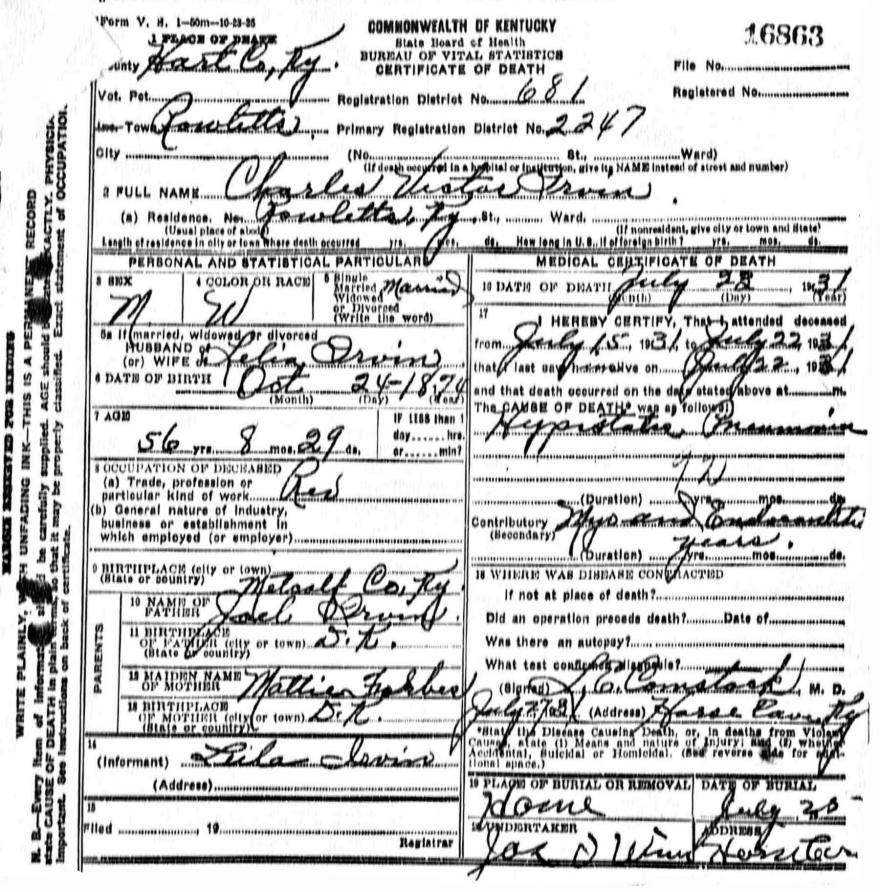 Form V. S. 1-50m-10-23-25
COMMONWEALTH OF KENTUCKY
State Board of Health
BUREAU OF VITAL STATISTICS
CERTIFICATE OF DEATH
16863
1 PLACE OF DEATH
County Hart Co, Ky.
File No.
Vot. Pct. Registration District No. 681
Registered No.
Inc. Town Rowletts Primary Registration District No. 2247
City (No. St., Ward)
(If death occurred in a hospital or institution, give its NAME instead of street and number)
2 FULL NAME Charles Victor Irvin
(a) Residence. No. Rowletts, Ky. St., Ward.
(Usual place of abode) (If nonresident, give city or town and State)
Length of residence in city or town where death occurred yrs. mos. ds. How long in U. S., if of foreign birth? yrs. mos. ds.
PERSONAL AND STATISTICAL PARTICULARS
3 SEX M
4 COLOR OR RACE W
5 Single Married Widowed or Divorced (Write the word) Married
5a If married, widowed or divorced
HUSBAND of
(or) WIFE of Lelia Irvin
6 DATE OF BIRTH Oct 24-1874
(Month) (Day) (Year)
7 AGE IF LESS than 1
56 yrs. 8 mos. 29 ds. day hrs.
or min?
8 OCCUPATION OF DECEASED
(a) Trade, profession or
particular kind of work
(b) General nature of industry,
business or establishment in
which employed (or employer)
9 BIRTHPLACE (city or town)
(State or country) Metcalf Co, Ky.
PARENTS
10 NAME OF
FATHER Joel Irvin
11 BIRTHPLACE
OF FATHER (city or town) D.K.
(State or country)
12 MAIDEN NAME
OF MOTHER Mattie Forbes
13 BIRTHPLACE
OF MOTHER (city or town) D.K.
(State or country)
14
(Informant) Leila Irvin
(Address)
15
Filed 19
Registrar
MEDICAL CERTIFICATE OF DEATH
16 DATE OF DEATH July 1931
(Month) (Day) (Year)
17
I HEREBY CERTIFY, That I attended deceased
from July 15, 1931, to July 22, 1931
that I last saw h alive on July 22, 1931
and that death occurred on the date stated above at m.
The CAUSE OF DEATH* was as follows:
Hypostatic Pneumonia
(Duration) yrs. mos. ds.
Contributory Myo and Endocarditis
(Secondary) years.
(Duration) yrs. mos. ds.
18 WHERE WAS DISEASE CONTRACTED
If not at place of death?
Did an operation precede death? Date of
Was there an autopsy?
What test confirmed diagnosis?
(Signed) L. E. Comstock, M. D.
(Address) Horse Cave, Ky
*State the Disease Causing Death, or, in deaths from Violent
Causes, state (1) Means and nature of Injury; and (2) whether
Accidental, Suicidal or Homicidal. (See reverse side for additional space.)
19 PLACE OF BURIAL OR REMOVAL Home
DATE OF BURIAL July
20 UNDERTAKER
ADDRESS
MARGIN RESERVED FOR BINDING
WRITE PLAINLY, WITH UNFADING INK—THIS IS A PERMANENT RECORD
N. B.—Every item of information should be carefully supplied. AGE should be stated EXACTLY. PHYSICIANS
state CAUSE OF DEATH in plain terms, so that it may be properly classified. Exact statement of OCCUPATION
important. See instructions on back of certificate.